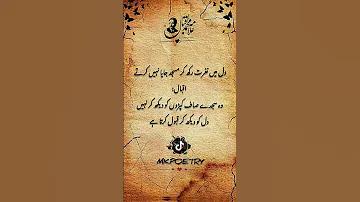 دل میں نفرت رکھ کر مسجد جایا نہیں کرتے
اقبال؛
وہ سجدے صاف کپڑوں کو دیکھ کر نہیں
دل کو دیکھ کر قبول کرتا ہے
MK POETRY